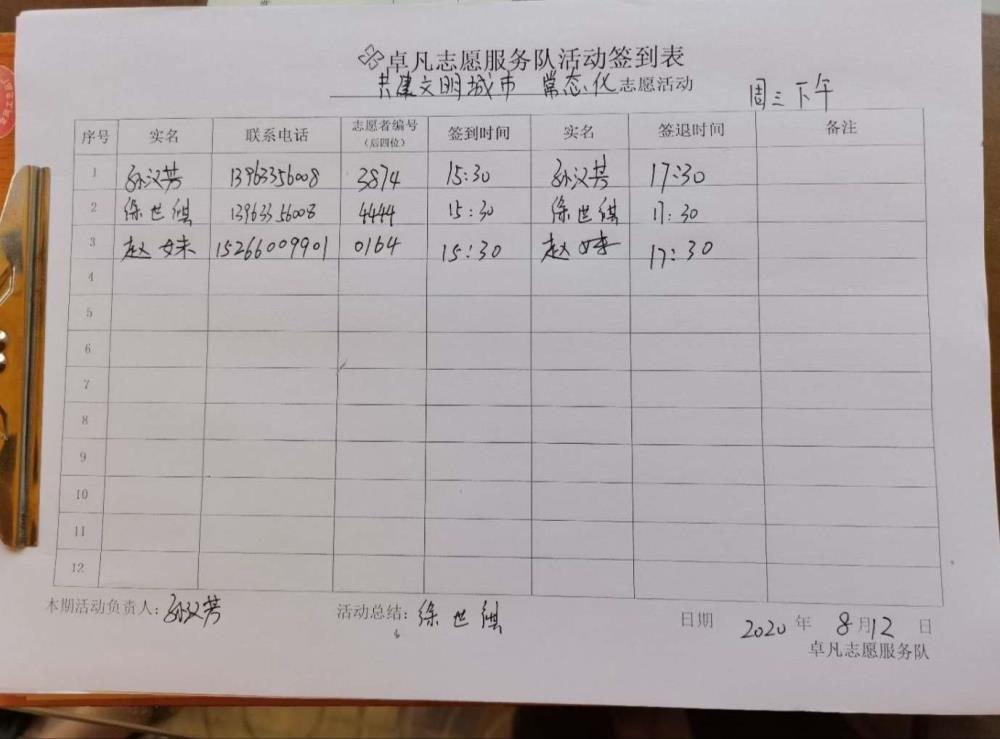 卓凡志愿服务队活动签到表
共建文明城市 常态化志愿活动 周三下午
序号 实名 联系电话 志愿者编号（后四位） 签到时间 实名 签退时间 备注
1 孙汉芳 13963356008 3874 15:30 孙汉芳 17:30
2 徐世侠 13963356008 4444 15:30 徐世侠 17:30
3 赵妹 15266009901 0164 15:30 赵妹 17:30
4
5
6
7
8
9
10
11
12
本期活动负责人：孙汉芳 活动总结：徐世 日期 2020年8月12日
卓凡志愿服务队